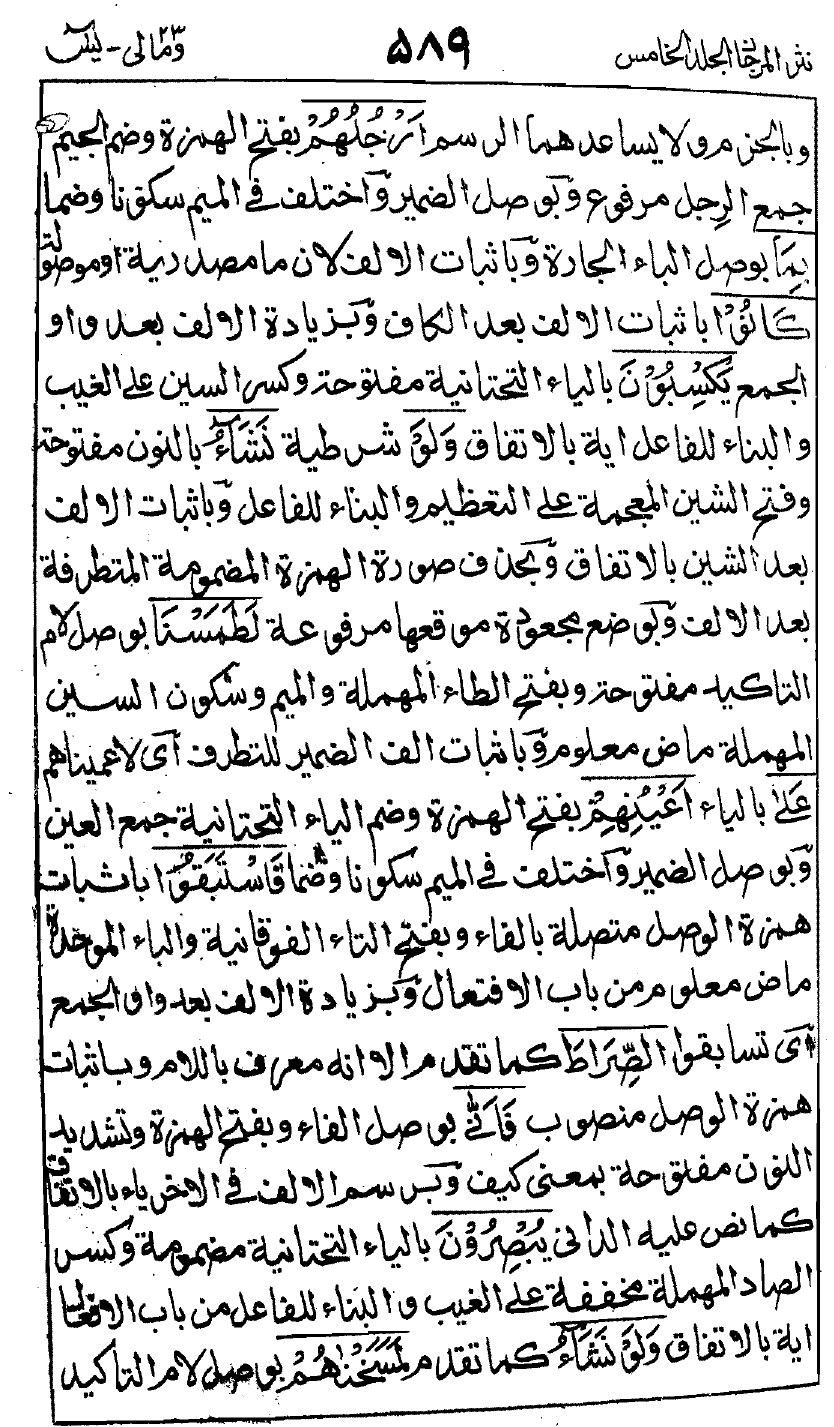 نثر المرجان الجلد الخامس ٥٨٩ ومالی-٢٣ يٰسٓ
وبالجزم ولا يساعدهما الرسم اَرْجُلُهُمْ بفتح الهمزة وضم الجيم
جمع الرِجل مرفوع وبوصل الضمير واختلف في الميم سكونا وضما
بِمَا بوصل الباء الجارة وباثبات الالف لان ما مصدرية اوموصولة
كَانُوْا باثبات الالف بعد الكاف وبزيادة الالف بعد واو
الجمع يَكْسِبُوْنَ بالياء التحتانية مفتوحة وكسر السين على الغيب
والبناء للفاعل اية بالاتفاق وَلَوْ شرطية نَشَآءُ بالنون مفتوحة
وفتح الشين المعجمة على التعظيم والبناء للفاعل وباثبات الالف
بعد الشين بالاتفاق وبحذف صورة الهمزة المضمومة المتطرفة
بعد الالف وبوضع مجعودة موقعها مرفوعة لَطَمَسْنَا بوصل لام
التاكيد مفتوحة وبفتح الطاء المهملة والميم وسكون السين
المهملة ماض معلوم وباثبات الف الضمير للتطرف اى لاعميناهم
عَلٰى بالياء اَعْيُنِهِمْ بفتح الهمزة وضم الياء التحتانية جمع العين
وبوصل الضمير واختلف في الميم سكونا وضما فَاسْتَبَقُوا باثبات
همزة الوصل متصلة بالفاء وبفتح التاء الفوقانية والباء الموحدة
ماض معلوم من باب الافتعال وبزيادة الالف بعد واو الجمع
اى تسابقوا الصِّرَاطَ كما تقدم الا انه معرف باللام وباثبات
همزة الوصل منصوب فَاَنّٰى بوصل الفاء وبفتح الهمزة وتشديد
النون مفتوحة بمعنى كيف وبرسم الالف في الاخر ياء بالاتفاق
كما نص عليه الدانى يُبْصِرُوْنَ بالياء التحتانية مضمومة وكسر
الصاد المهملة مخففة على الغيب والبناء للفاعل من باب الافعال
اية بالاتفاق وَلَوْ نَشَآءُ كما تقدم لَمَسَخْنٰهُمْ بوصل لام التاكيد